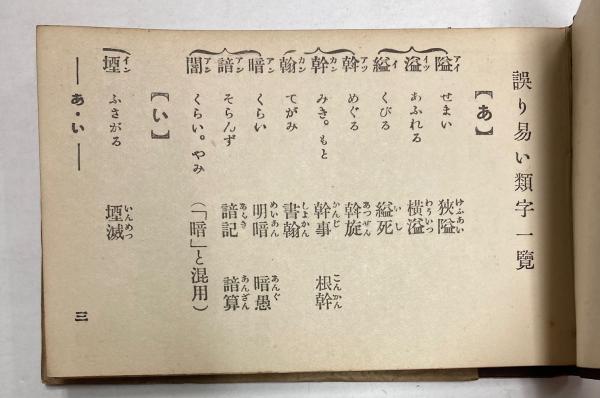 誤り易い類字一覽
【あ】
隘アイ せまい 狹隘けふあい
溢イツ あふれる 橫溢わういつ
縊イ くびる 縊死いし
斡アツ めぐる 斡旋あつせん
幹カン みき。もと 幹事かんじ 根幹こんかん
翰カン てがみ 書翰しよかん
暗アン くらい 明暗めいあん 暗愚あんぐ
諳アン そらんず 諳記あんき 諳算あんざん
闇アン くらい。やみ （「暗」と混用）
【い】
堙イン ふさがる 堙滅いんめつ
── あ・い ──
三